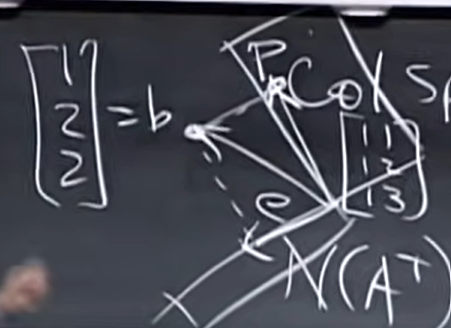 [1
2
2] = b
P
Col Sp
[1 1
1 2
1 3]
e
N(A^T)